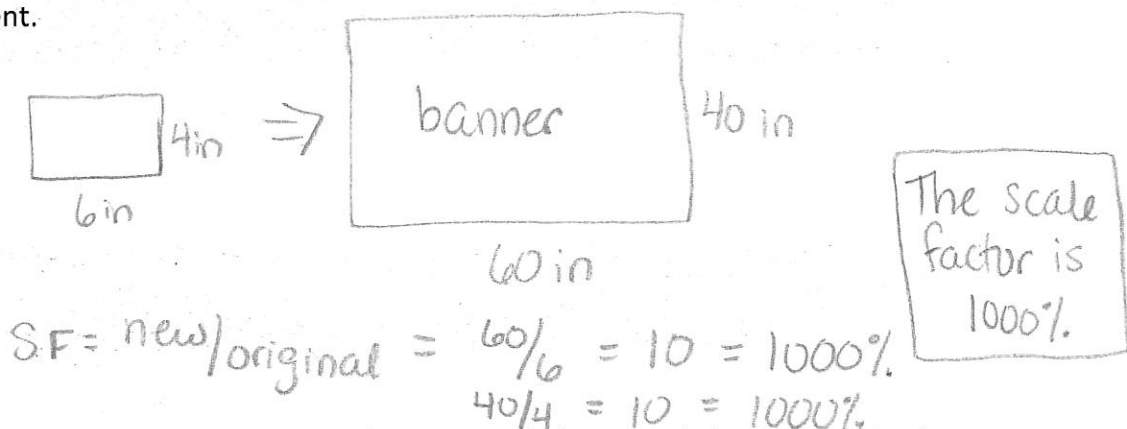 ent.
4in
6in
⇒
banner
40 in
60 in
The scale
factor is
1000%.
S.F = new/original = 60/6 = 10 = 1000%.
40/4 = 10 = 1000%.